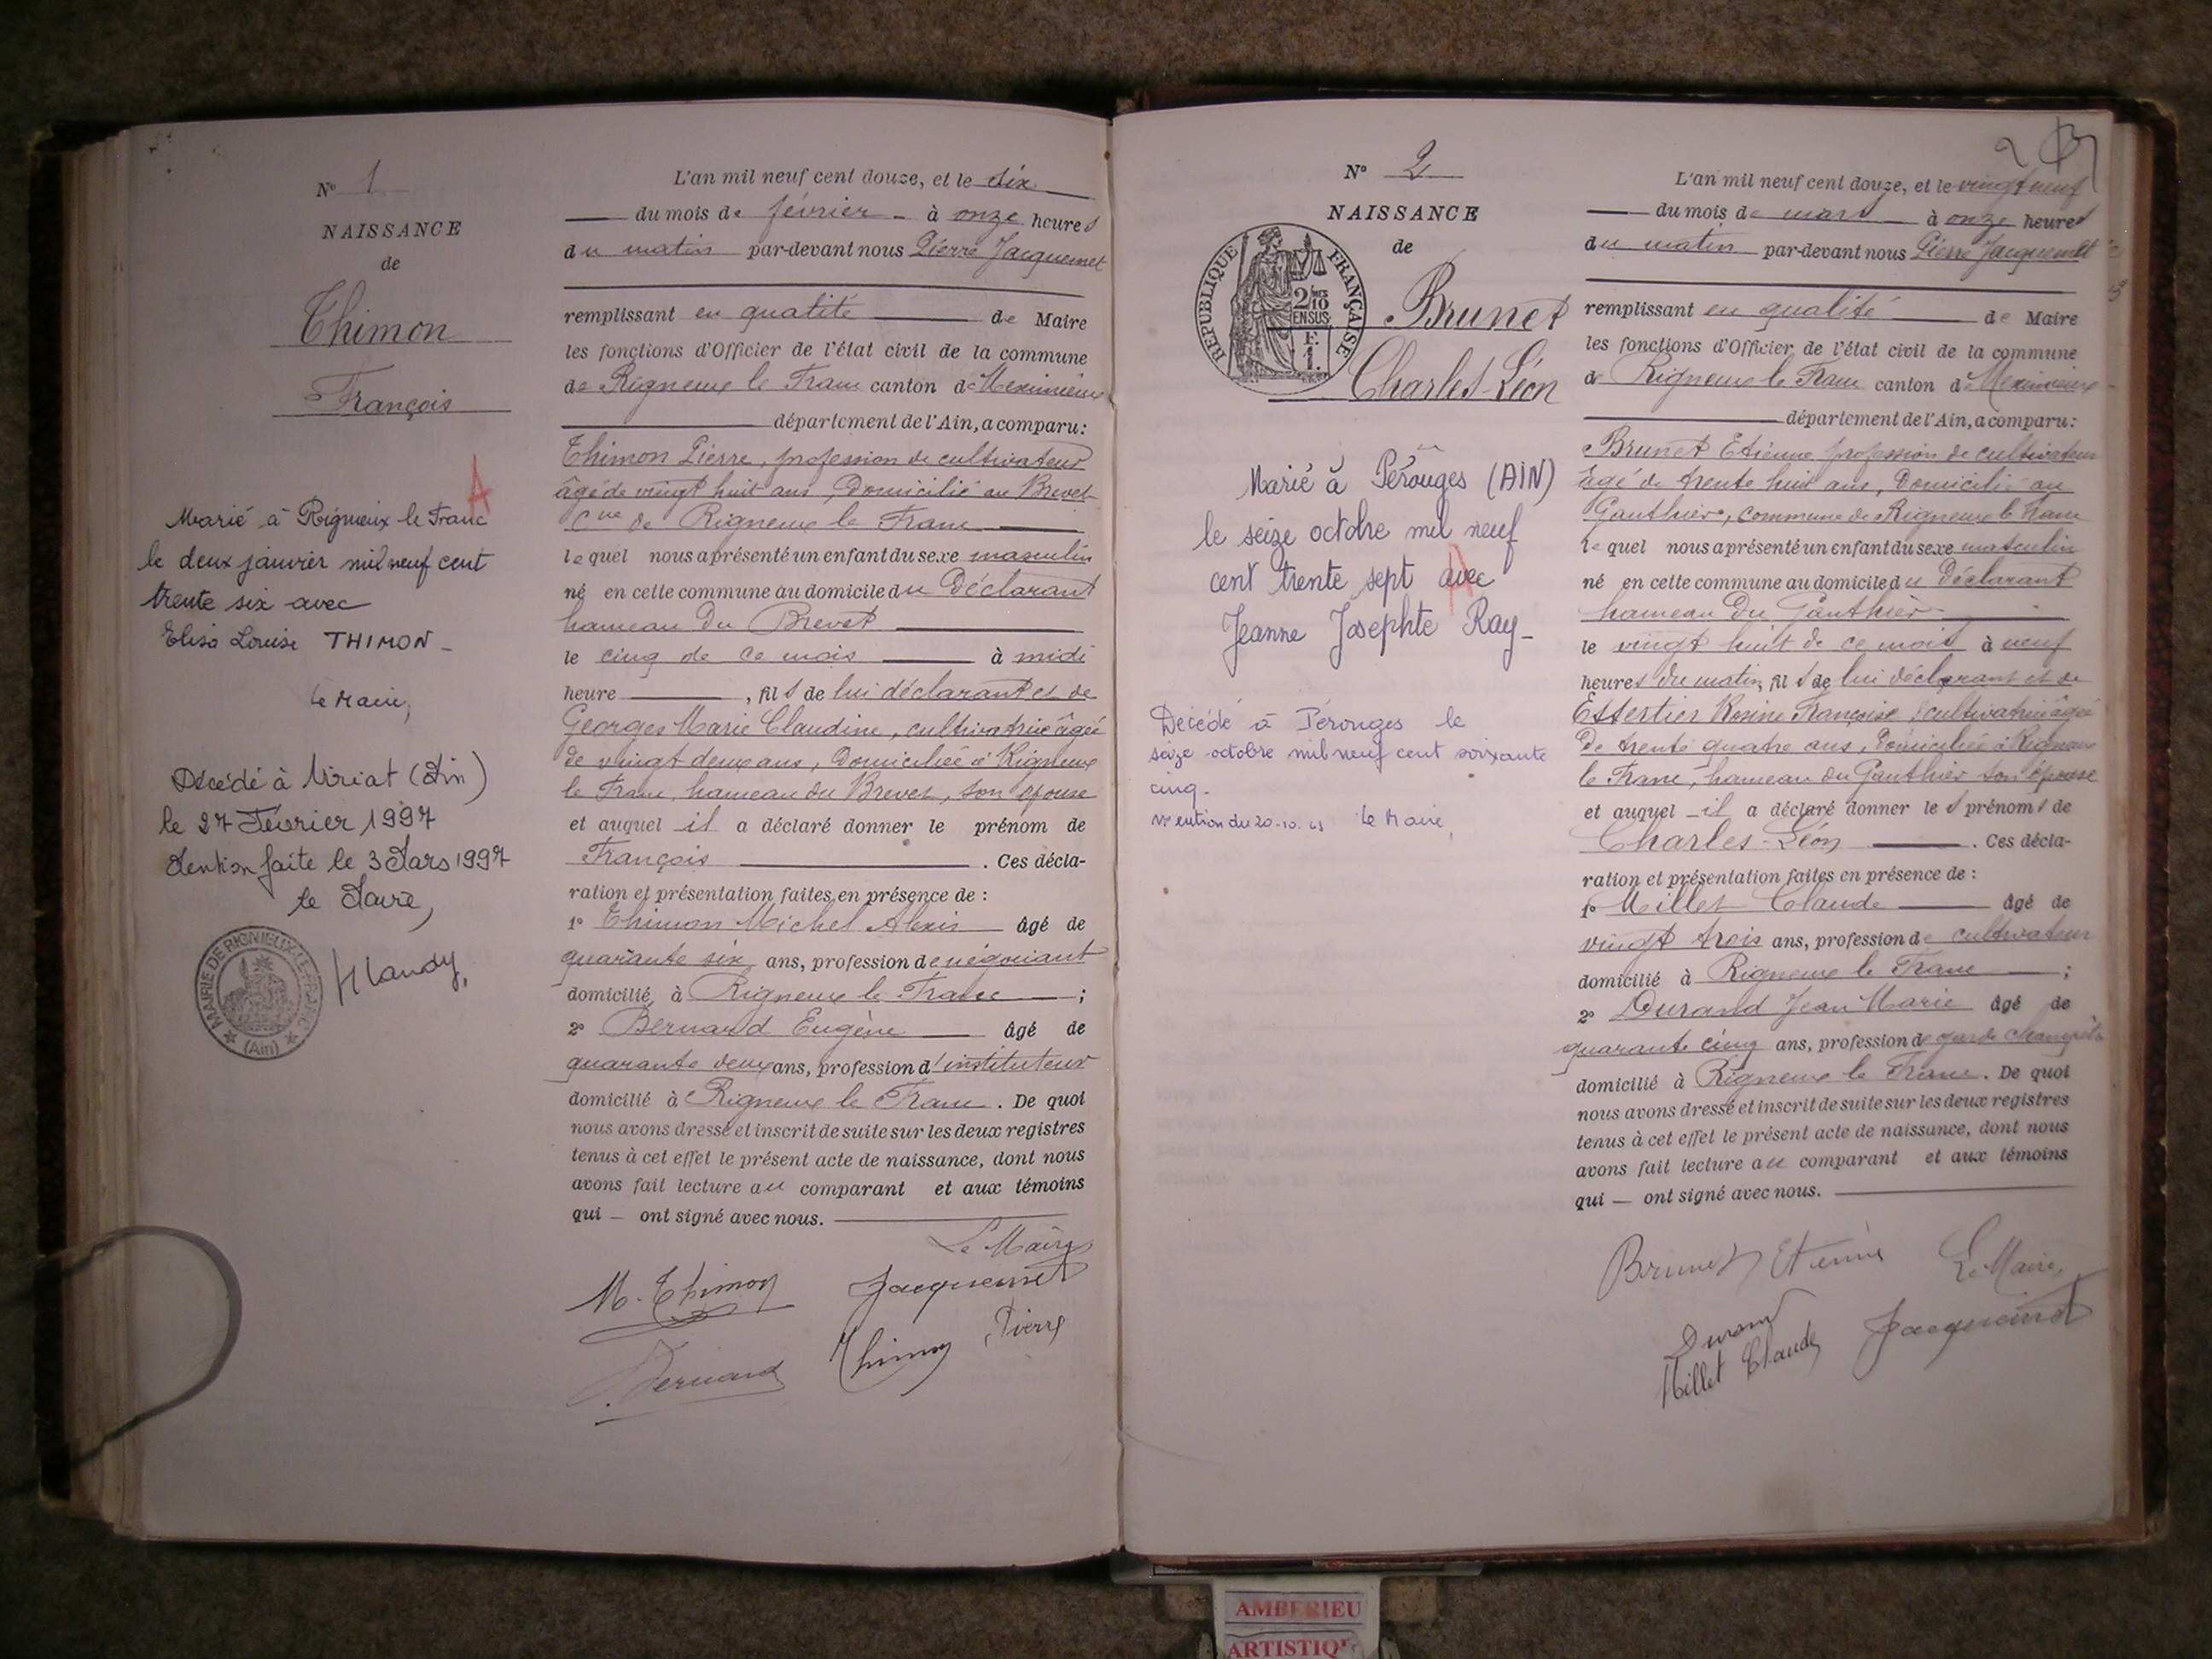 N° 1
NAISSANCE
de
Thimon
François
A
Marié à Rignieux le Franc
le deux janvier mil neuf cent
trente six avec
Elisa Louise THIMON -
Le Maire,
Décédé à Viriat (Ain)
le 27 Février 1997
Mention faite le 3 Mars 1997
le Maire,
MAIRIE DE RIGNIEUX-LE-FRANC
(Ain)
L'an mil neuf cent douze, et le six
du mois de février - à onze heures
du matin par-devant nous Pierre Jacquemet
remplissant en qualité de Maire
les fonctions d'Officier de l'état civil de la commune
de Rigneux le Franc canton de Meximieux
département de l'Ain, a comparu:
Thimon Pierre, profession de cultivateur
âgé de vingt huit ans, Domicilié au Brevet
Cne de Rigneux le Franc
lequel nous a présenté un enfant du sexe masculin
né en cette commune au domicile du Déclarant
hameau Du Brevet
le cinq de ce mois à midi
heure , fils de lui déclarant et de
Georges Marie Claudine, cultivatrice âgée
de vingt deux ans, Domiciliée à Rigneux
le Franc, hameau du Brevet, son épouse
et auquel il a déclaré donner le prénom de
François . Ces décla-
ration et présentation faites en présence de :
1° Thimon Michel Alexis âgé de
quarante six ans, profession de négociant
domicilié à Rigneux le Franc ;
2° Bernard Eugène âgé de
quarante deux ans, profession d'instituteur
domicilié à Rigneux le Franc . De quoi
nous avons dressé et inscrit de suite sur les deux registres
tenus à cet effet le présent acte de naissance, dont nous
avons fait lecture au comparant et aux témoins
qui - ont signé avec nous.
Le Maire
M. Thimon Jacquemet
Bernard Thimon Pierre
N° 2
NAISSANCE
de
RÉPUBLIQUE FRANÇAISE
2/10
EN SUS
F.
1.
Brunet
Charles-Léon
Marié à Pérouges (AIN)
le seize octobre mil neuf
cent trente sept avec
Jeanne Josephte Ray-
Décédé à Pérouges le
seize octobre mil neuf cent soixante
cinq.
Mention du 20-10.65 Le Maire,
2
L'an mil neuf cent douze, et le vingt neuf
du mois de mars à onze heures
du matin par-devant nous Pierre Jacquemet
remplissant en qualité de Maire
les fonctions d'Officier de l'état civil de la commune
de Rigneux le Franc canton de Meximieux
département de l'Ain, a comparu:
Brunet Etienne profession de cultivateur
âgé de trente huit ans, Domicilié au
Gauthier, commune de Rigneux le Franc
lequel nous a présenté un enfant du sexe masculin
né en cette commune au domicile du Déclarant
hameau Du Gauthier
le vingt huit de ce mois à neuf
heures du matin, fils de lui déclarant et de
Essertier Rosine Françoise, cultivatrice âgée
De trente quatre ans, Domiciliée à Rigneux
le Franc, hameau du Gauthier son épouse
et auquel - il a déclaré donner les prénoms de
Charles-Léon . Ces décla-
ration et présentation faites en présence de :
1° Millet Claude âgé de
vingt trois ans, profession de cultivateur
domicilié à Rigneux le Franc ;
2° Durand Jean Marie âgé de
quarante cinq ans, profession de garde champêtre
domicilié à Rigneux le Franc . De quoi
nous avons dressé et inscrit de suite sur les deux registres
tenus à cet effet le présent acte de naissance, dont nous
avons fait lecture au comparant et aux témoins
qui - ont signé avec nous.
Brunet Etienne Le Maire,
Durand Jacquemet
Millet Claude
AMBERIEU
ARTISTIQU